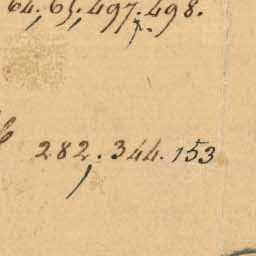 64. 65. 497. 498.
282. 344. 153